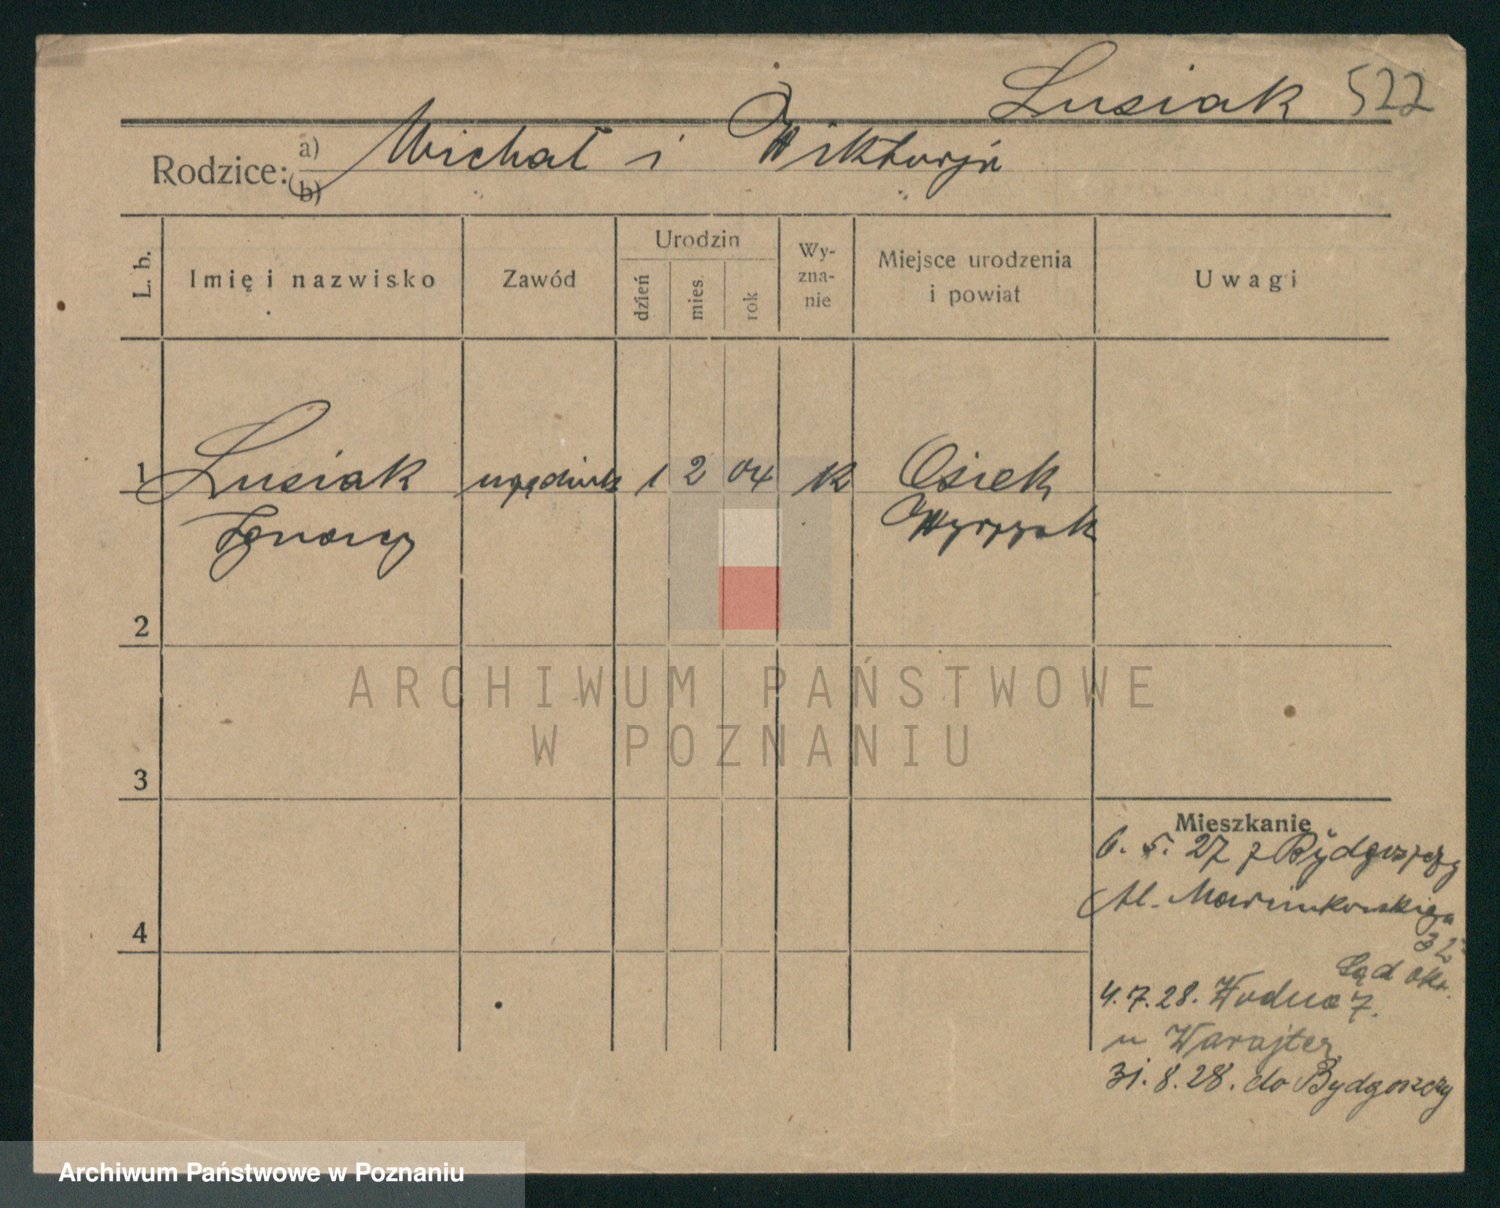 Lusiak 522
Rodzice: a) Michał i Wiktorja
b)
L. b.
Imię i nazwisko
Zawód
Urodzin
dzień
mies.
rok
Wy-
zna-
nie
Miejsce urodzenia
i powiat
Uwagi
1 Lusiak urzędnik 1 2 04 k Osiek
Ignacy Wyrzysk
2
3
4
Mieszkanie
6. 5. 27 z Bydgoszczy
Al. Marcinkowskiego
32
Sąd okr.
4.7.28. Wodna 7.
u Warajter
31.8.28. do Bydgoszczy
ARCHIWUM PAŃSTWOWE
W POZNANIU
Archiwum Państwowe w Poznaniu